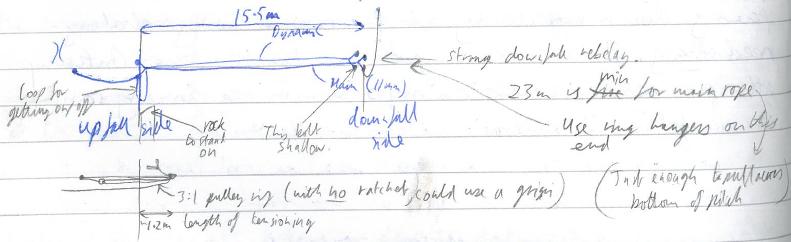 15.5m
Dynamic
strong downfall rebelay.
Main (11mm)
23m is min for main rope
Loop for
getting on/off
upfall side
rock
to stand
on
This bolt
shallow.
downfall
side
Use ring hangers on this
end
3:1 pulley rig (with no ratchet, could use a grigri)
(Just enough to pull across
bottom of pitch)
~1.2m length of tensioning